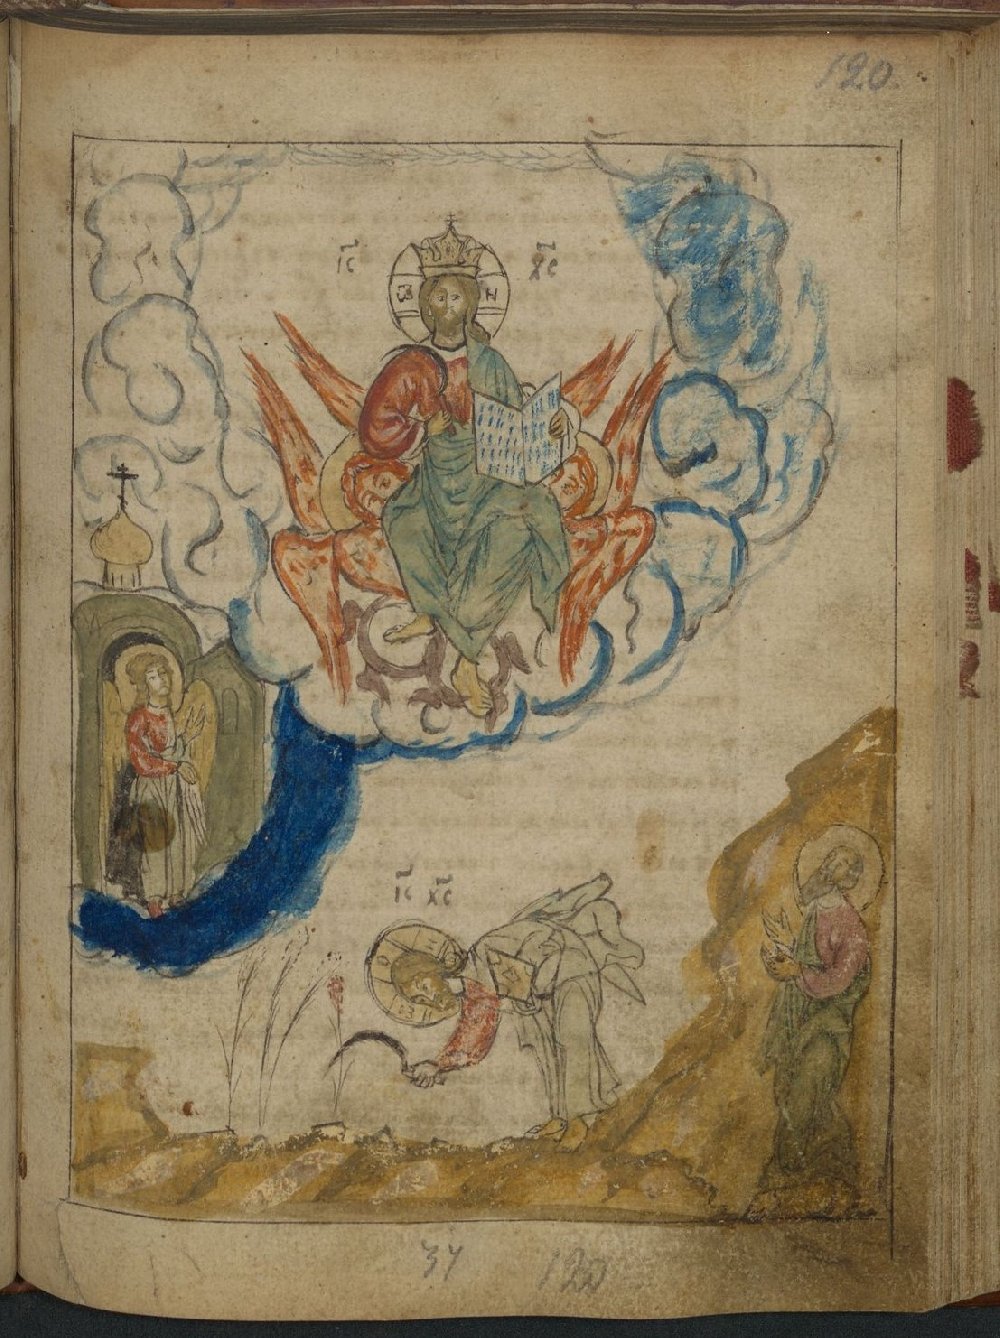 120.
І҃С Х҃С
ѾН
І҃С Х҃С
ѾН
34
120